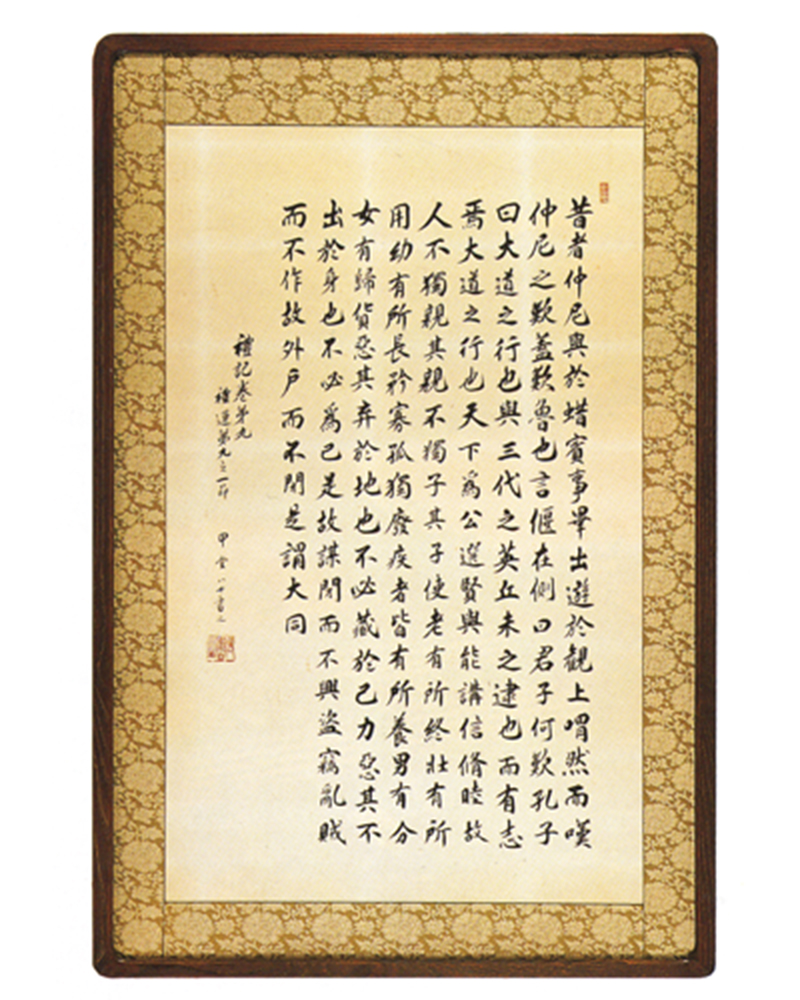 昔者仲尼與於蜡賓事畢出遊於観上喟然而嘆
仲尼之歎蓋歎魯也言偃在側曰君子何歎孔子
曰大道之行也與三代之英丘未之逮也而有志
焉大道之行也天下為公選賢與能講信脩睦故
人不獨親其親不獨子其子使老有所終壯有所
用幼有所長矜寡孤獨廢疾者皆有所養男有分
女有歸貨惡其弃於地也不必藏於己力惡其不
出於身也不必為己是故謀閉而不興盜竊亂賊
而不作故外戶而不閉是謂大同
禮記卷第九
禮運第九之一節